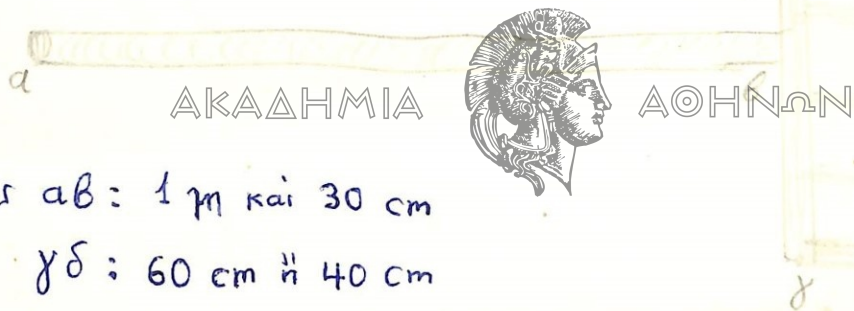 α β
ΑΚΑΔΗΜΙΑ ΑΘΗΝΩΝ
αβ: 1 m και 30 cm
γδ: 60 cm ἤ 40 cm
γ